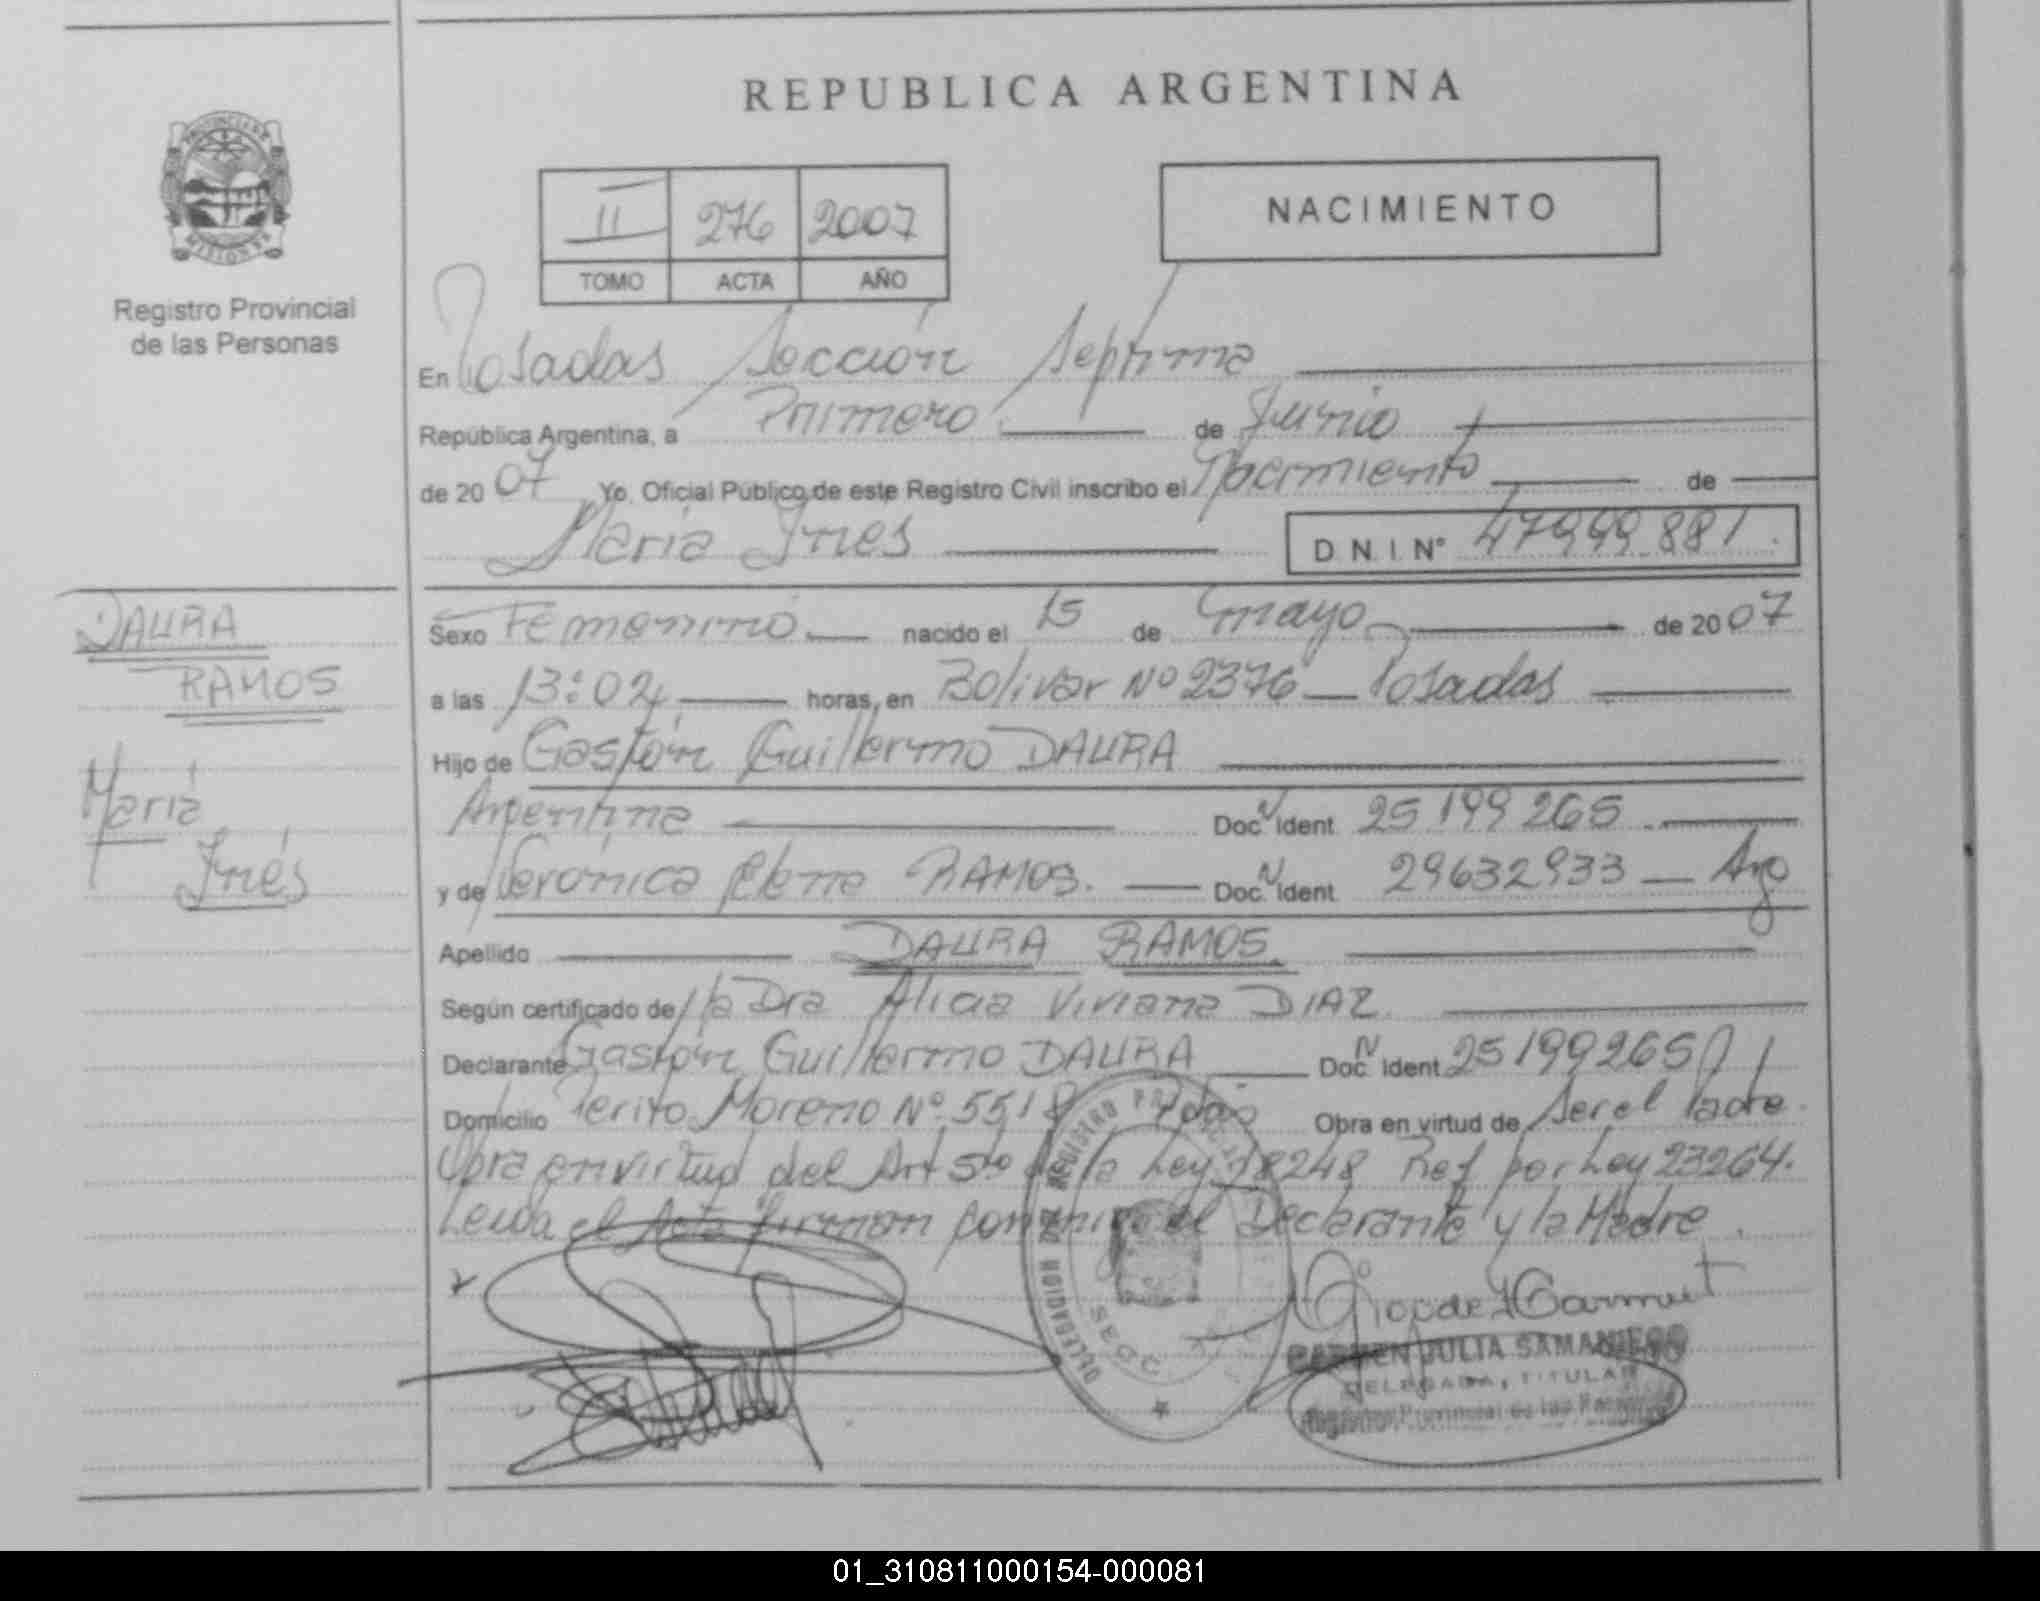 REPUBLICA ARGENTINA
PROVINCIA DE
MISIONES
Registro Provincial
de las Personas
II 276 2007
TOMO ACTA AÑO
NACIMIENTO
En Posadas Sección Septima
República Argentina, a Primero de Junio
de 20 07 Yo, Oficial Público de este Registro Civil inscribo el Nacimiento de
María Inés D.N.I. N° 47999881.
DAURA
RAMOS
María
Inés
Sexo Femenino nacido el 15 de mayo de 20 07
a las 13:02 horas, en Bolivar Nº 2376 Posadas
Hijo de Gastón Guillermo DAURA
Argentina Doc. N Ident. 25199265
y de Verónica Elena RAMOS. Doc. N Ident. 29632933 Arg
Apellido DAURA RAMOS.
Según certificado de la Dra Alicia Viviana DIAZ
Declarante Gastón Guillermo DAURA Doc. N Ident. 25199265
Domicilio Perito Moreno Nº 5518 Pdas Obra en virtud de Ser el Padre.
Obra en virtud del Art 5to de la Ley 18248 Ref por Ley 23264.
Leida el Acta firman conmigo el Declarante y la Madre.
DELEGACION DEL REGISTRO
CARMEN JULIA SAMANIEGO
DELEGADA TITULAR
Registro Provincial de las Personas
01_310811000154-000081